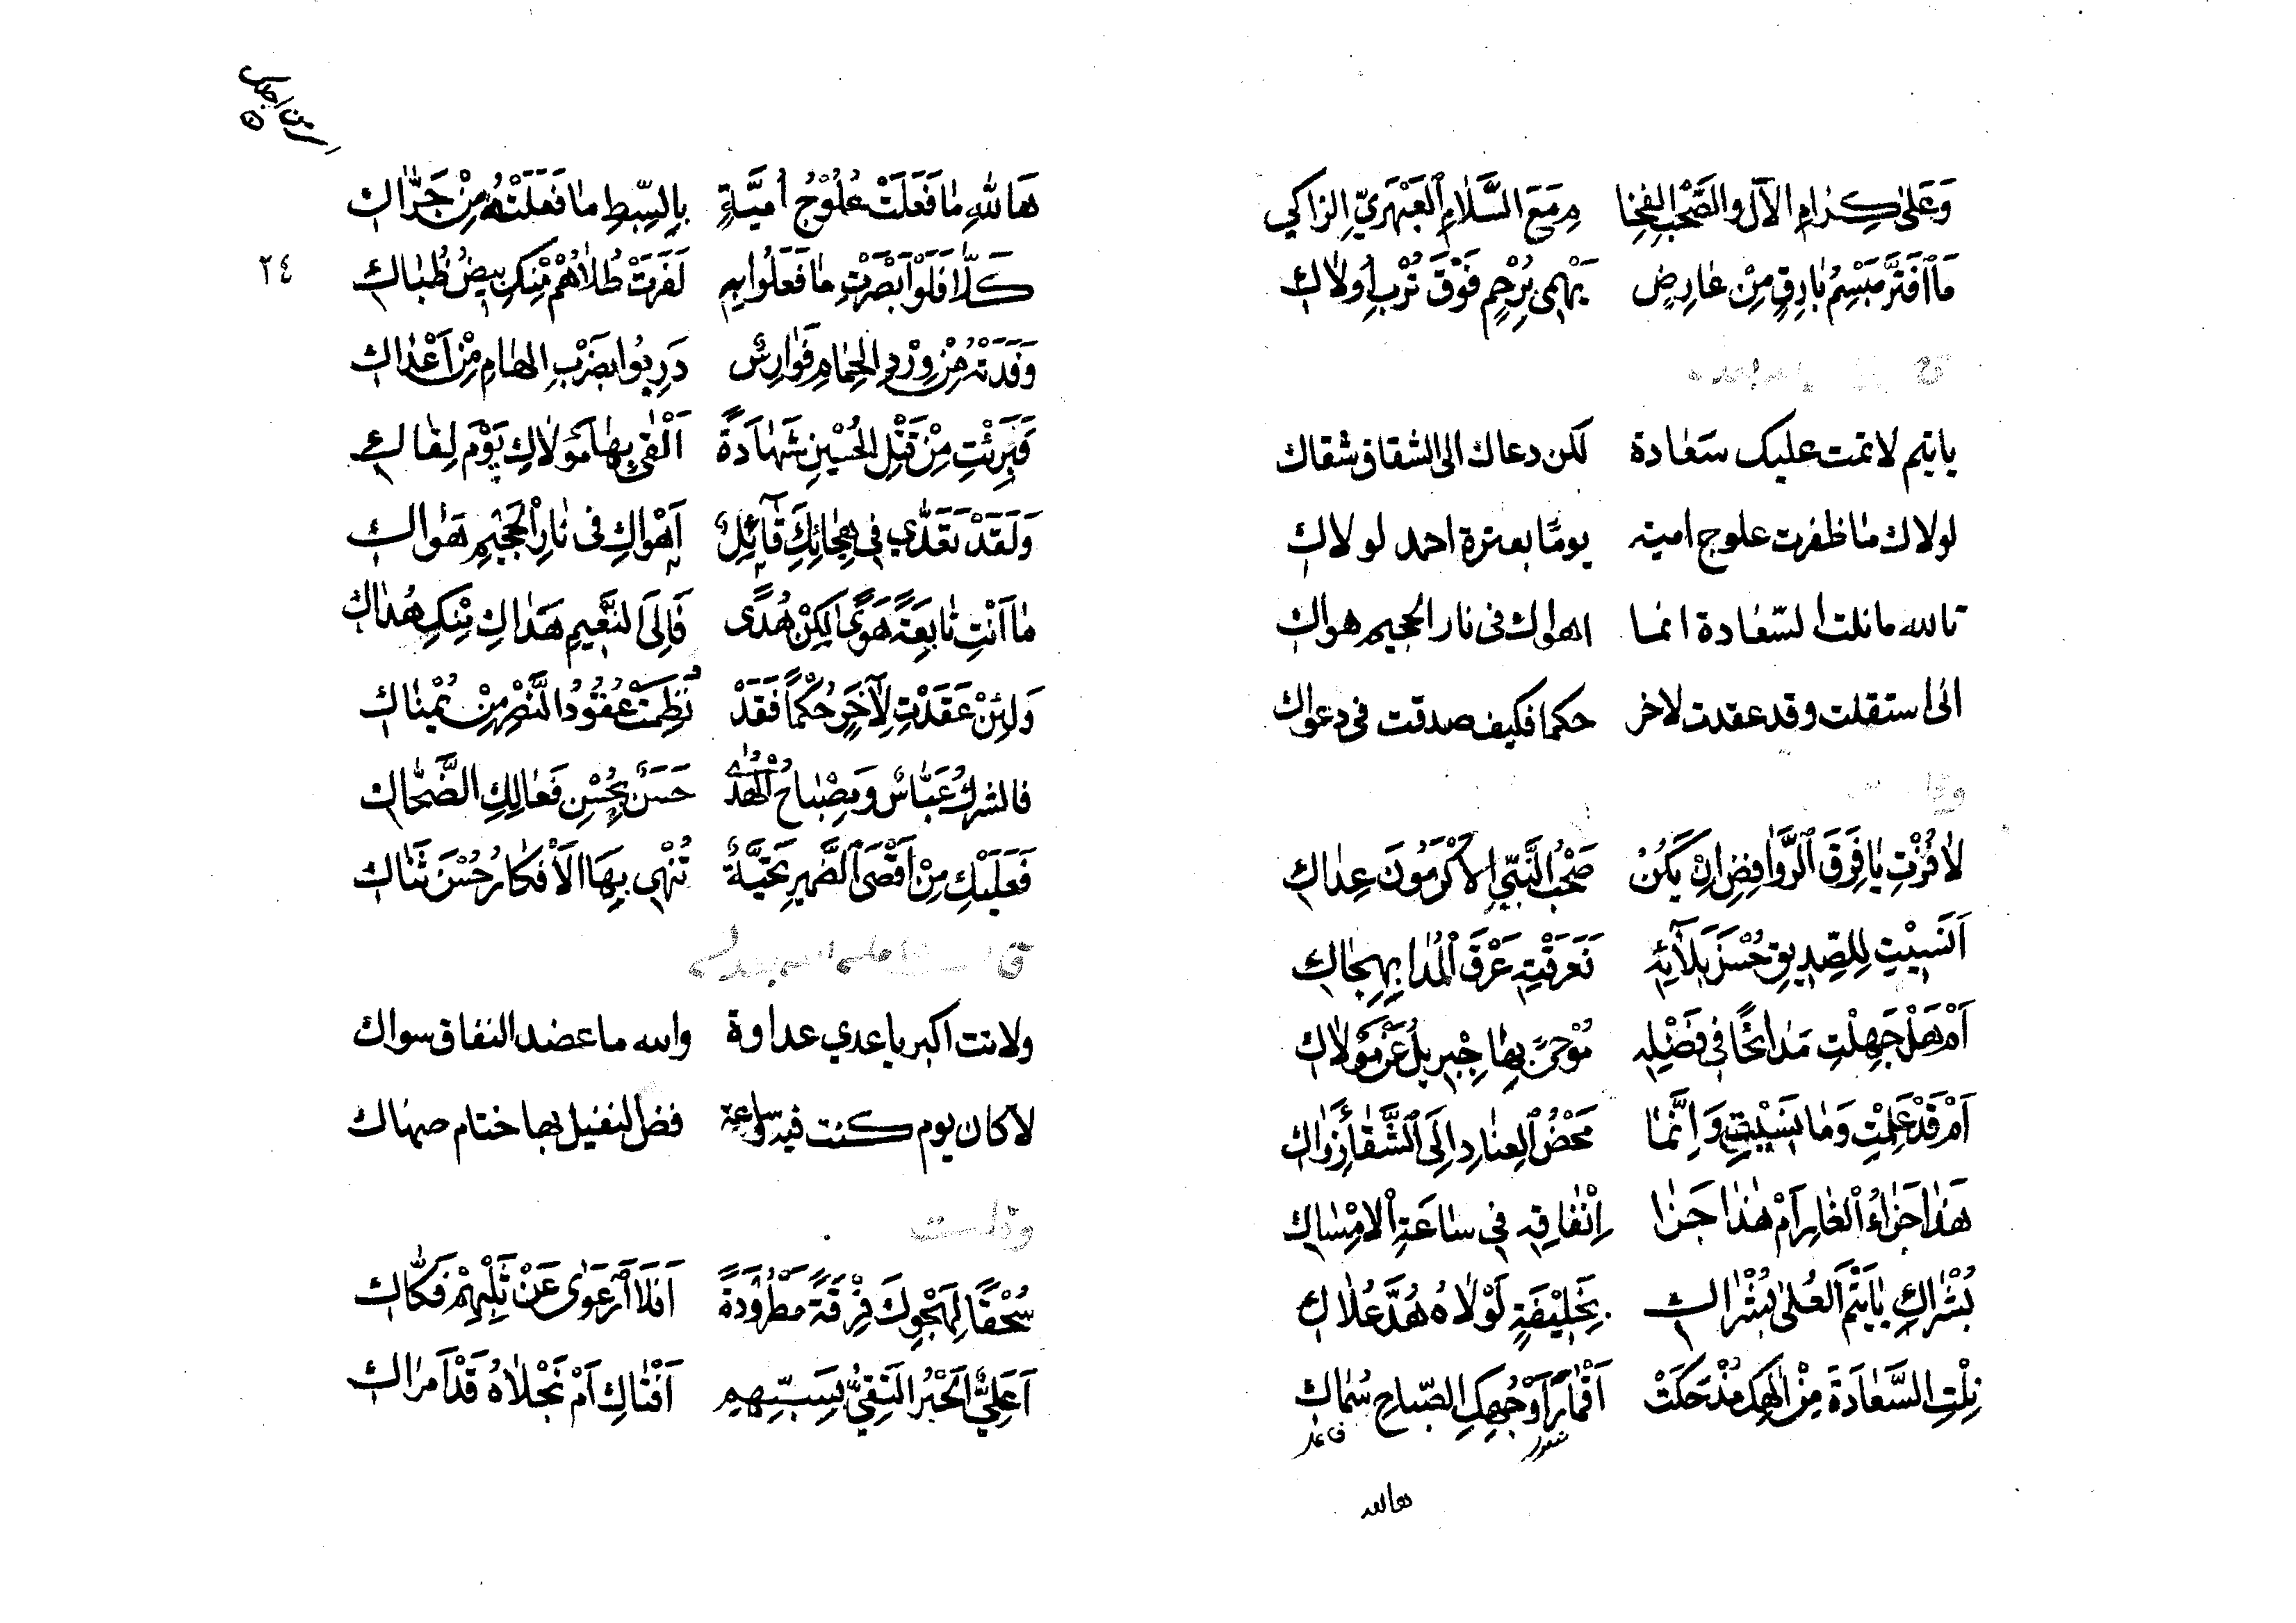 وَعَلىٰ كِرَامِ الآلِ وَالصَّحْبِ الفِخَا مِ مَعَ السَّلَامِ العَبْهَرِيِّ الزاكي
مَا افتَرَّ مَبْسِمُ بَارِقٍ مِنْ عَارِضٍ يَهْمِي بِرُحْمٍ فَوْقَ تُرْبِ اُولَاكِ
ياتيم لا تمت عليك سعادة لكن دعاك الى الشقاق شقاك
لولاك ما ظفرت علوج امية يومًا بعترة احمد لولاك
تالله ما نلت السّعادة انما اهواك فى نار الجحيم هواك
انى استقلت وقد عقدت لاخر حكما فكيف صدقت فى دعواك
لَا فُزْتِ يَا فِرَقَ الرَّوَافِضِ اِنْ يَكُنْ صَحْبُ النَّبِيِّ الاَكْرَمُونَ عِدَاكِ
اَنَسِيْتِ لِلصِّدِيقِ حُسْنَ بَلَآئِهِ نَعَرَقْتِهِ عَرْقَ الْمُدَا بِهِجَاكِ
اَمْ هَلْ جَهِلْتِ مَدَائحًا فِي فَضْلِهِ مُوْحىً بِهَا جِبْرِيلُ عَنْ مَوْلَاكِ
اَمْ قَدْ عَلِمْتِ وَمَا نَسِيْتِ وَاِنَّمَا مَحْضُ العِنَادِ اِلَى الشَّقَا زَوَاكِ
هَذَا جَزَاءُ الْغَارِ اَمْ هٰذَا جَزَا اِنْفَاقِهِ فِي سَاعَةِ الاِمْسَاكِ
بُشْرَاكِ يَا تَيْمَ العُلىٰ بُشْرَاكِ بِخَلِيْفَةٍ لَوْلَاهُ هُدَّ عُلَاكِ
نِلْتِ السَّعَادَةَ مِنْ الٰهِكِ مُذْ حَكَتْ اَقْمَارَ اَوْجُهِكِ الصِّبَاحِ سُمَاكِ
هالله
هَاللهِ مَا فَعَلَتْ عُلُوْجُ اُمَيَّةٍ بِالسِّبْطِ مَا فَعَلَتْهُ مِنْ جَرَّاكِ
٢٤
كَلَّا فَلَوْ اَبْصَرْتِ مَا فَعَلُوا بِهِ لَفَرَتْ طُلَاهُمْ مِنْكِ بِيضُ ظُبَاكِ
وَفَدَتْهُ مِنْ وِرْدِ الحِمَامِ فَوَارِسٌ دَرِبُوا بِضَرْبِ الهَامِ مِنْ اَعْدَاكِ
فَبَرِئْتِ مِنْ قَتْلِ الحُسَيْنِ شَهَادَةً اَلْقىٰ بِهَا مَوْلَاكِ يَوْمَ لِقَاكِ
وَلَقَدْ تَعَدَّى فِي هِجَائِكِ قَآئِلٌ اَهْوَاكِ فى نَارِ الْجَحِيْمِ هَوَاكِ
مَا اَنْتِ تَابِعَةً هَوىً لَكِنْ هُدًى فَاِلَى النَّعِيمِ هَدَاكِ مِنْكِ هُدَاكِ
وَلَئِنْ عَقَدْتِ لِآخَرٍ حُكْمًا فَقَدْ نُظِمَتْ عُقُوْدُ النَّصْرِ مِنْ يُمْنَاكِ
فالشرك عَبَّاسٌ وَمِصْبَاحُ الْهُدٰى حَسَنٌ بِحُسْنِ فَعَالِكِ الضَّحَّاكِ
فَعَلَيْكِ مِنْ اَقْصَى الضَّمِيرِ تَحِيَّةٌ تُنْهِي بِهَا الاَفْكَارُ حُسْنَ ثَنَاكِ
ولانت اكبر يا عدي عداوة والله ما عضد النفاق سواك
لا كان يوم كنت فيه وساعة فض النفيل بها ختام صهاك
وقلت
سُحْقًا لِهَجْوِكَ فِرْقَةً مَطْرُوْدَةً اَفَلَا ارْعَوٰى عَنْ ثَلْبِهِمْ فَكَّاكِ
اَعَلِيٌّ الحَبْرُ النَقِيُّ بِسَبِّهِمِ اَفْتَاكِ اَمْ نَجْلَاهُ قَدْ اَمَرَاكِ